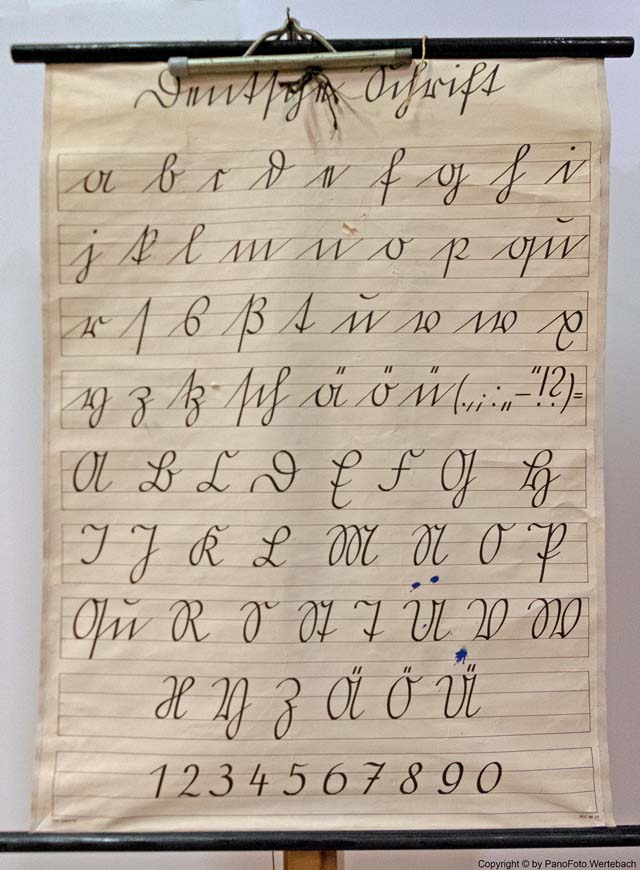 Deutsche Schrift
a b c d e f g h i
j k l m n o p qu
r ſ s ß t u v w x
y z tz ſch ä ö ü (.,;:„–“!?)=
A B C D E F G H
I J K L M N O P
Qu R S St T U V W
X Y Z Ä Ö Ü
1 2 3 4 5 6 7 8 9 0
Copyright © by PanoFoto.Wertebach